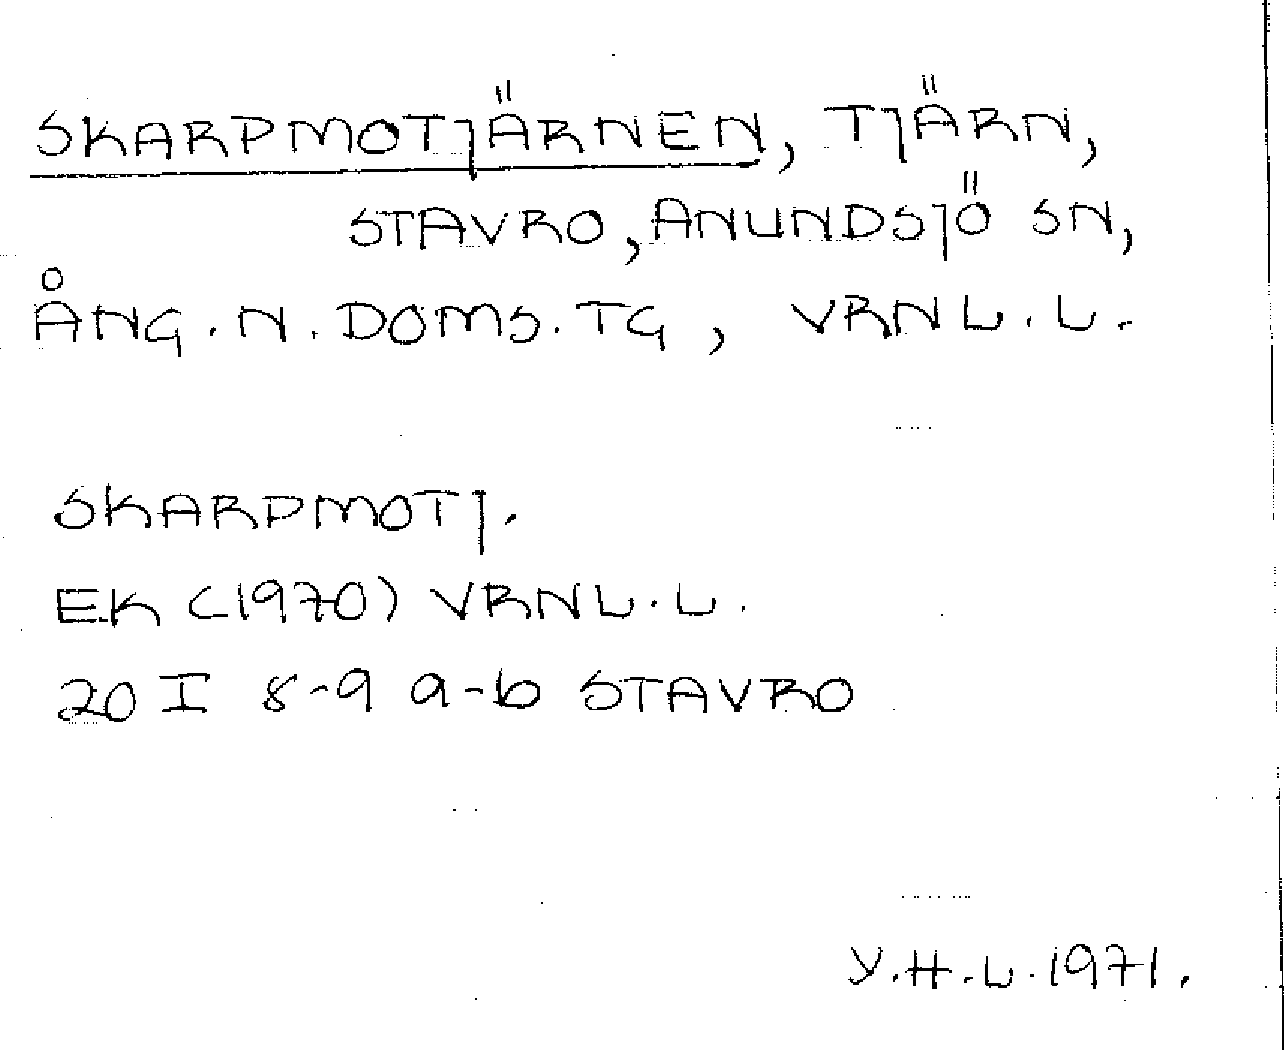 SKARPMOTJÄRNEN, TJÄRN,
STAVRO, ANUNDSJÖ SN,
ÅNG. N. DOMS. TG, VRNL.L.
SKARPMOTJ.
EK (1970) VRNL.L.
20 I 8-9 a-b STAVRO
Y.H.L. 1971.